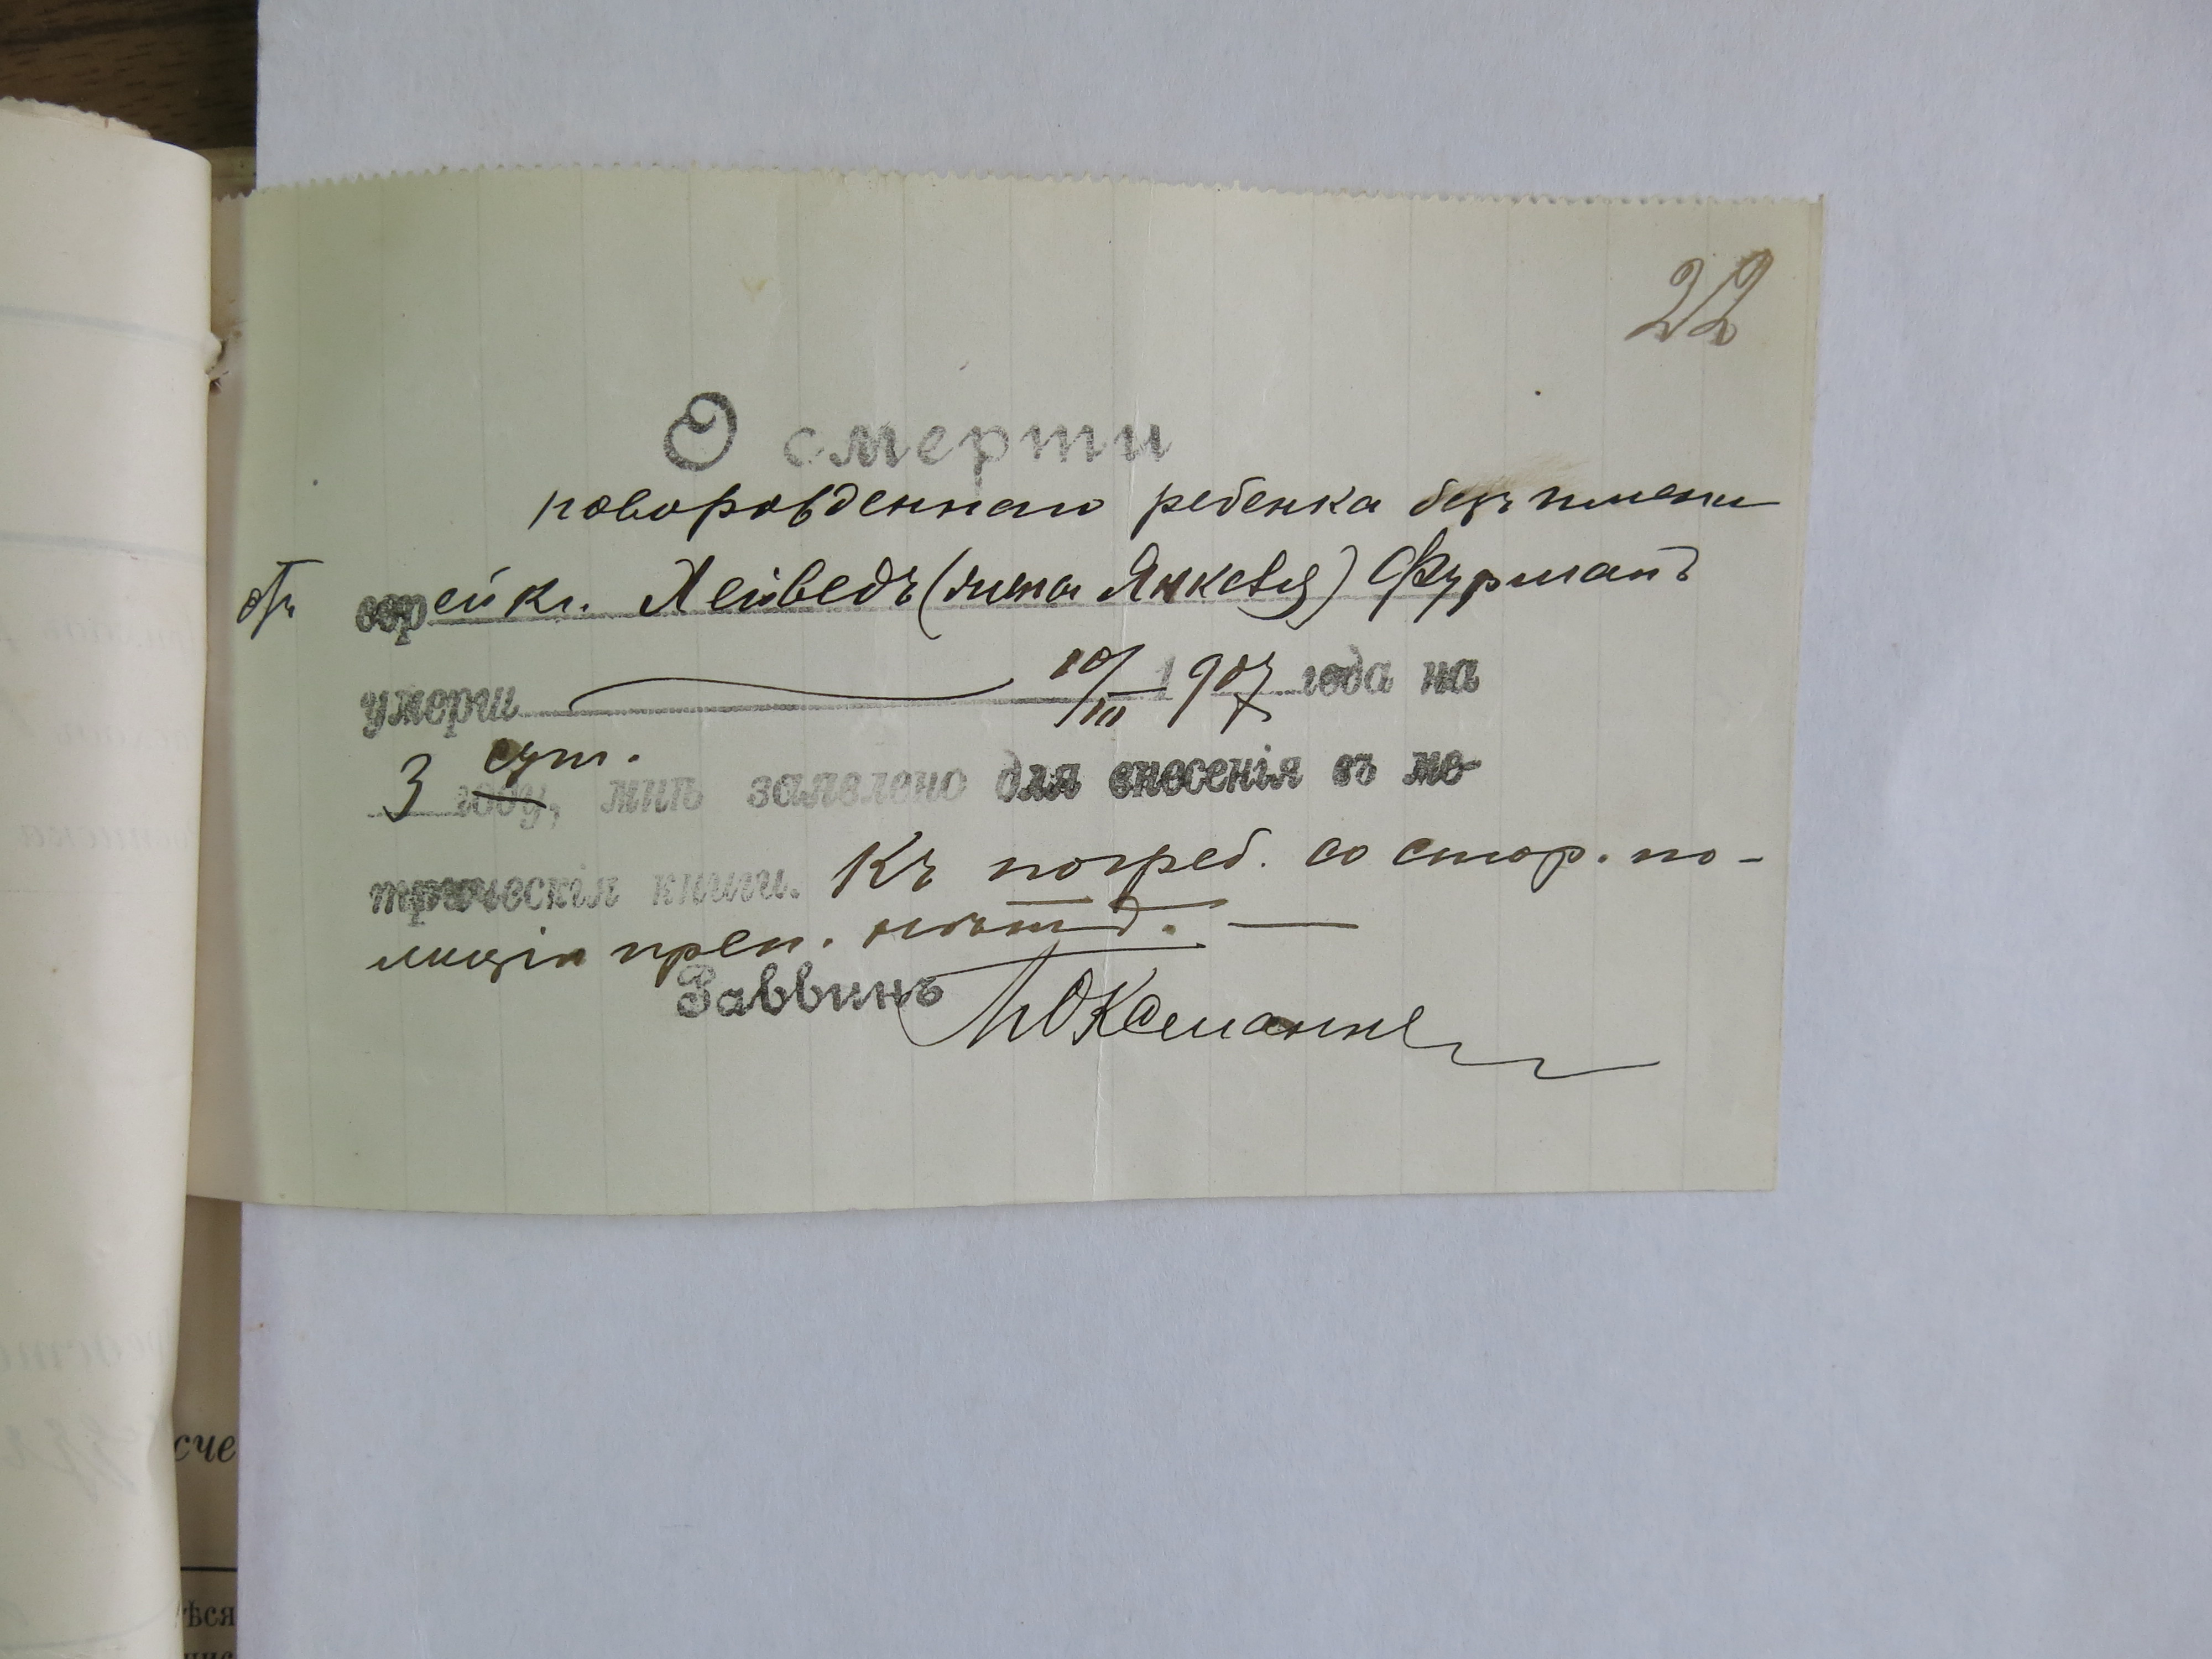 22
О смерти
новорожденнаго ребенка безъ имени
отъ еврейк. Хейведъ (жена Янкеля) Фурманъ
умерш 10/III 1907 года на
3 сут. году, мнѣ заявлено для внесенія въ ме-
трическія книги. Къ погреб. со стор. по-
лиціи преп. нѣтъ.
Раввинъ
сче
ѣся